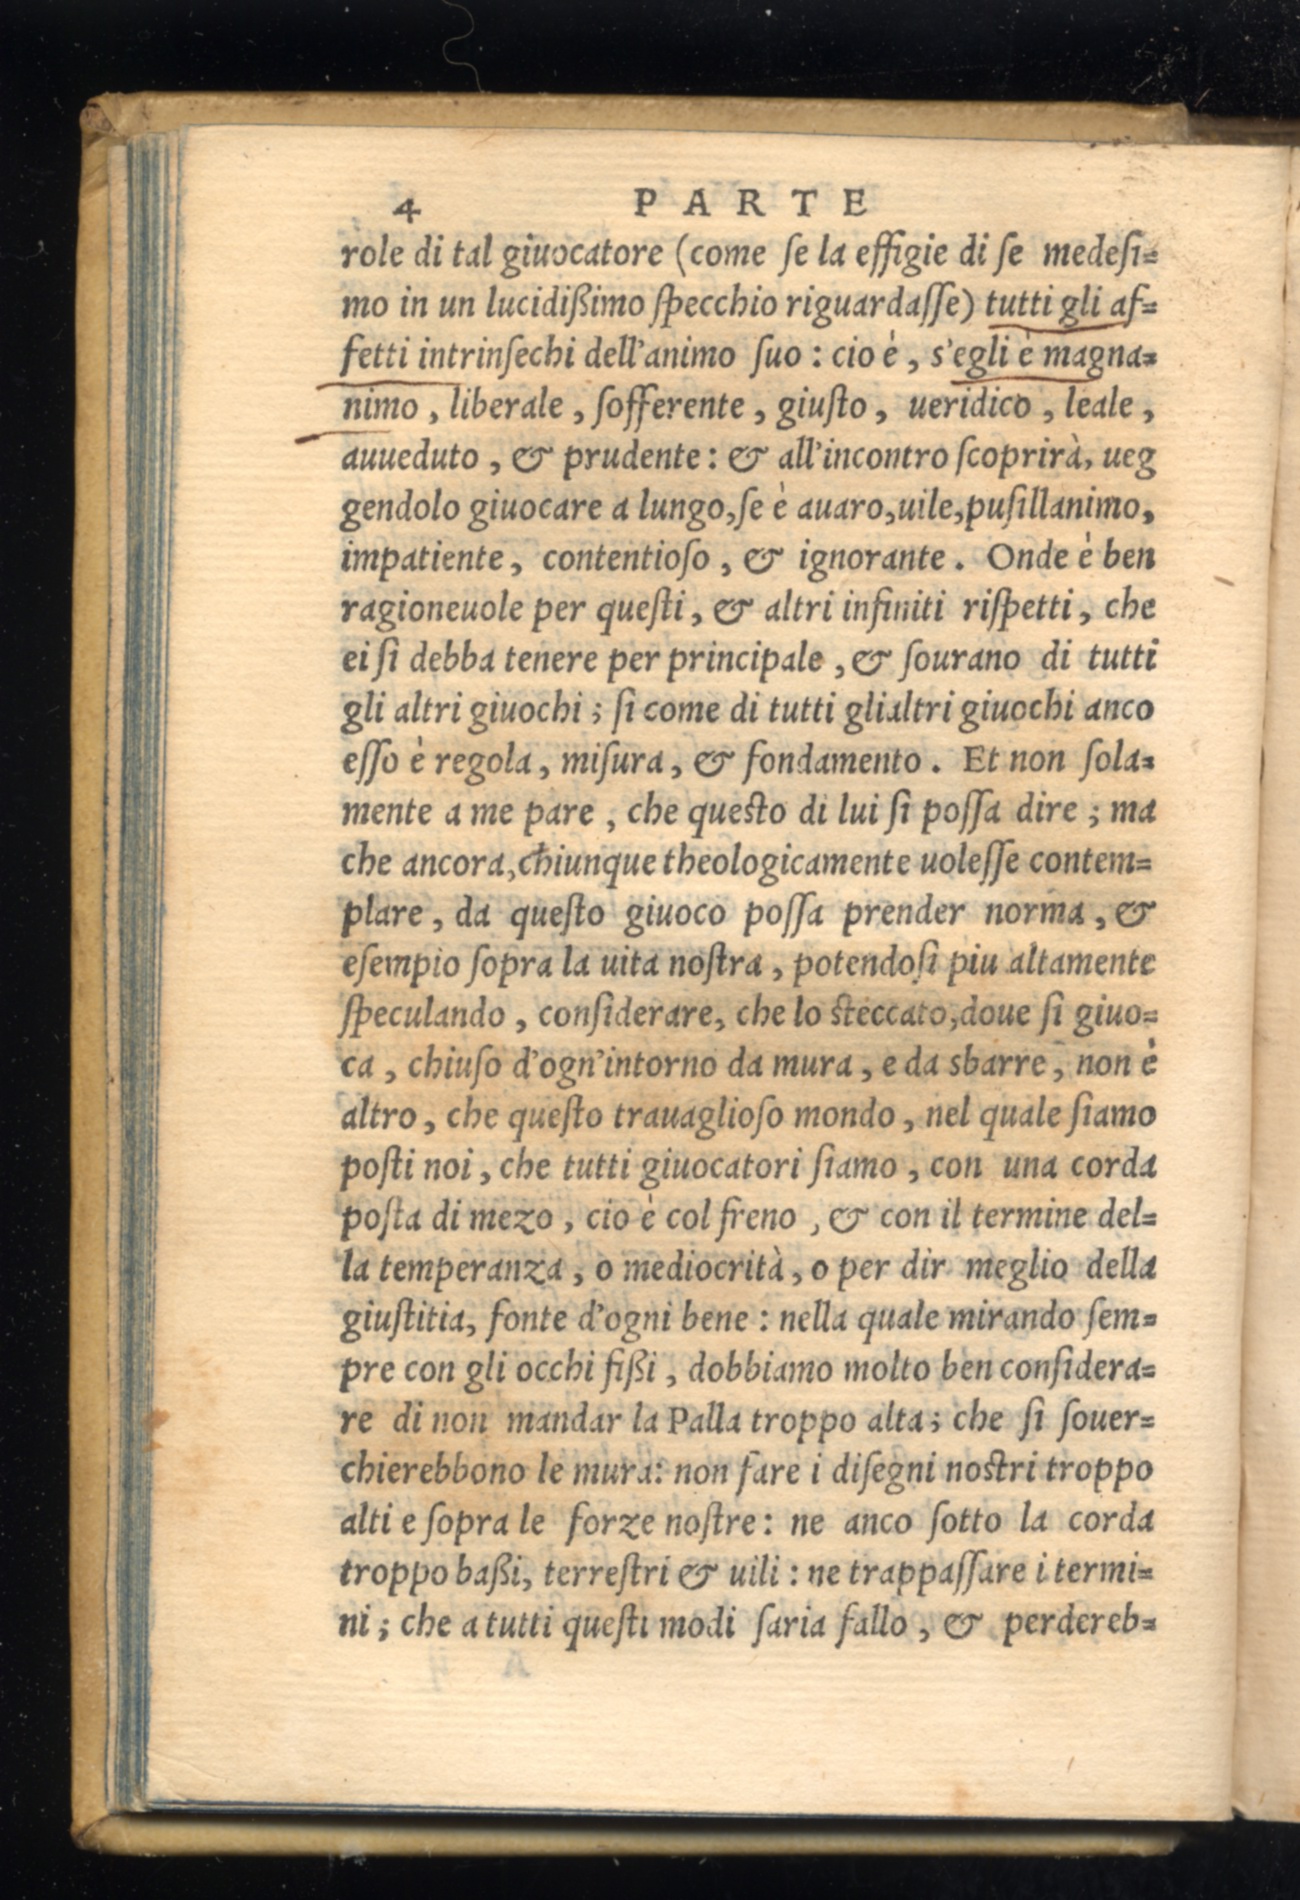 4 PARTE
role di tal giuocatore (come ſe la effigie di ſe medeſi=
mo in un lucidißimo ſpecchio riguardaſſe) tutti gli af=
fetti intrinſechi dell'animo ſuo : cio è , s'egli è magna=
nimo , liberale , ſofferente , giuſto , ueridico , leale ,
auueduto , & prudente : & all'incontro ſcoprirà, ueg
gendolo giuocare a lungo,ſe è auaro,uile,puſillanimo,
impatiente , contentioſo , & ignorante . Onde è ben
ragioneuole per queſti , & altri infiniti riſpetti , che
ei ſi debba tenere per principale , & ſourano di tutti
gli altri giuochi ; ſi come di tutti glialtri giuochi anco
eſſo è regola , miſura , & fondamento . Et non ſola=
mente a me pare , che queſto di lui ſi poſſa dire ; ma
che ancora,chiunque theologicamente uoleſſe contem=
plare , da queſto giuoco poſſa prender norma , &
eſempio ſopra la uita noſtra , potendoſi piu altamente
ſpeculando , conſiderare, che lo ſteccato,doue ſi giuo=
ca , chiuſo d'ogn'intorno da mura , e da sbarre , non è
altro , che queſto trauaglioſo mondo , nel quale ſiamo
poſti noi , che tutti giuocatori ſiamo , con una corda
poſta di mezo , cio è col freno , & con il termine del=
la temperanza , o mediocrità , o per dir meglio della
giuſtitia, fonte d'ogni bene : nella quale mirando ſem=
pre con gli occhi fißi , dobbiamo molto ben conſidera=
re di non mandar la Palla troppo alta ; che ſi ſouer=
chierebbono le mura: non fare i diſegni noſtri troppo
alti e ſopra le forze noſtre : ne anco ſotto la corda
troppo baßi, terreſtri & uili : ne trappaſſare i termi=
ni ; che a tutti queſti modi ſaria fallo , & perdereb=